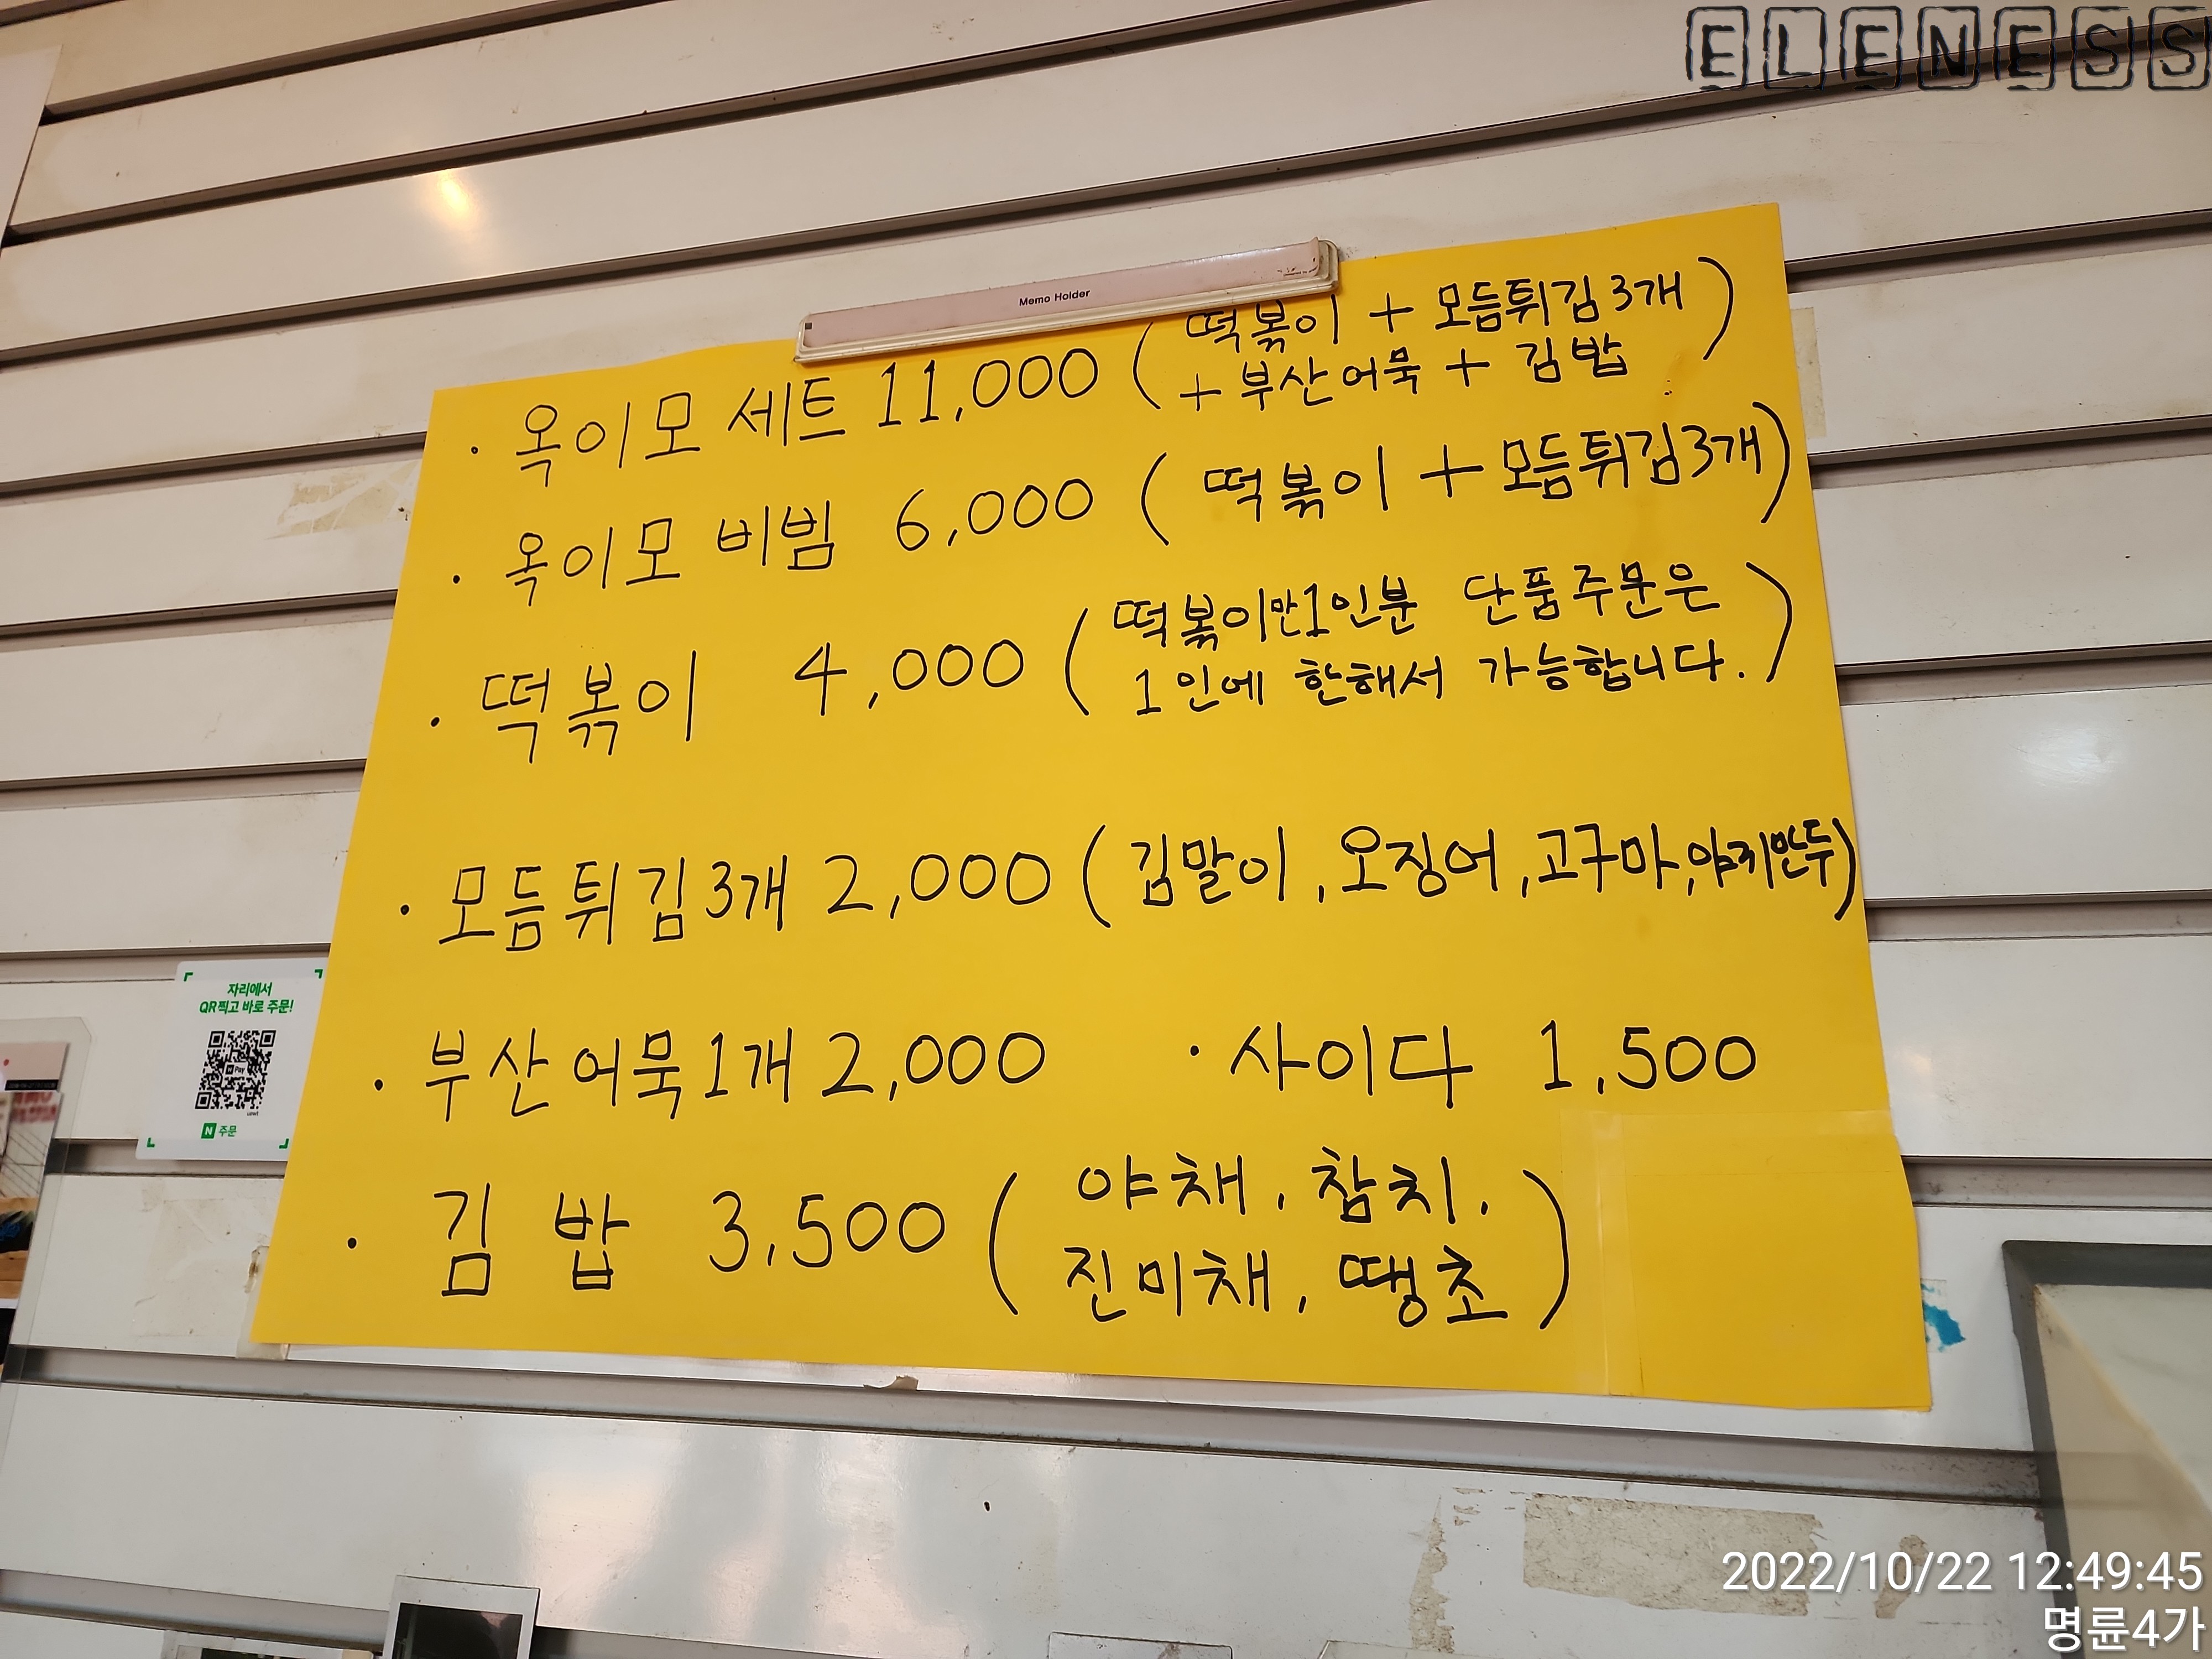 ELENESS
Memo Holder
· 옥이모 세트 11,000 ( 떡볶이 + 모듬튀김3개
+ 부산어묵 + 김밥 )
· 옥이모 비빔 6,000 ( 떡볶이 + 모듬튀김3개)
· 떡볶이 4,000 ( 떡볶이만1인분 단품주문은
1인에 한해서 가능합니다. )
· 모듬튀김3개 2,000 (김말이, 오징어, 고구마, 야끼만두)
· 부산어묵1개 2,000 · 사이다 1,500
· 김밥 3,500 ( 야채, 참치,
진미채, 땡초 )
자리에서
QR찍고 바로 주문!
N Pay
N 주문
2022/10/22 12:49:45
명륜4가